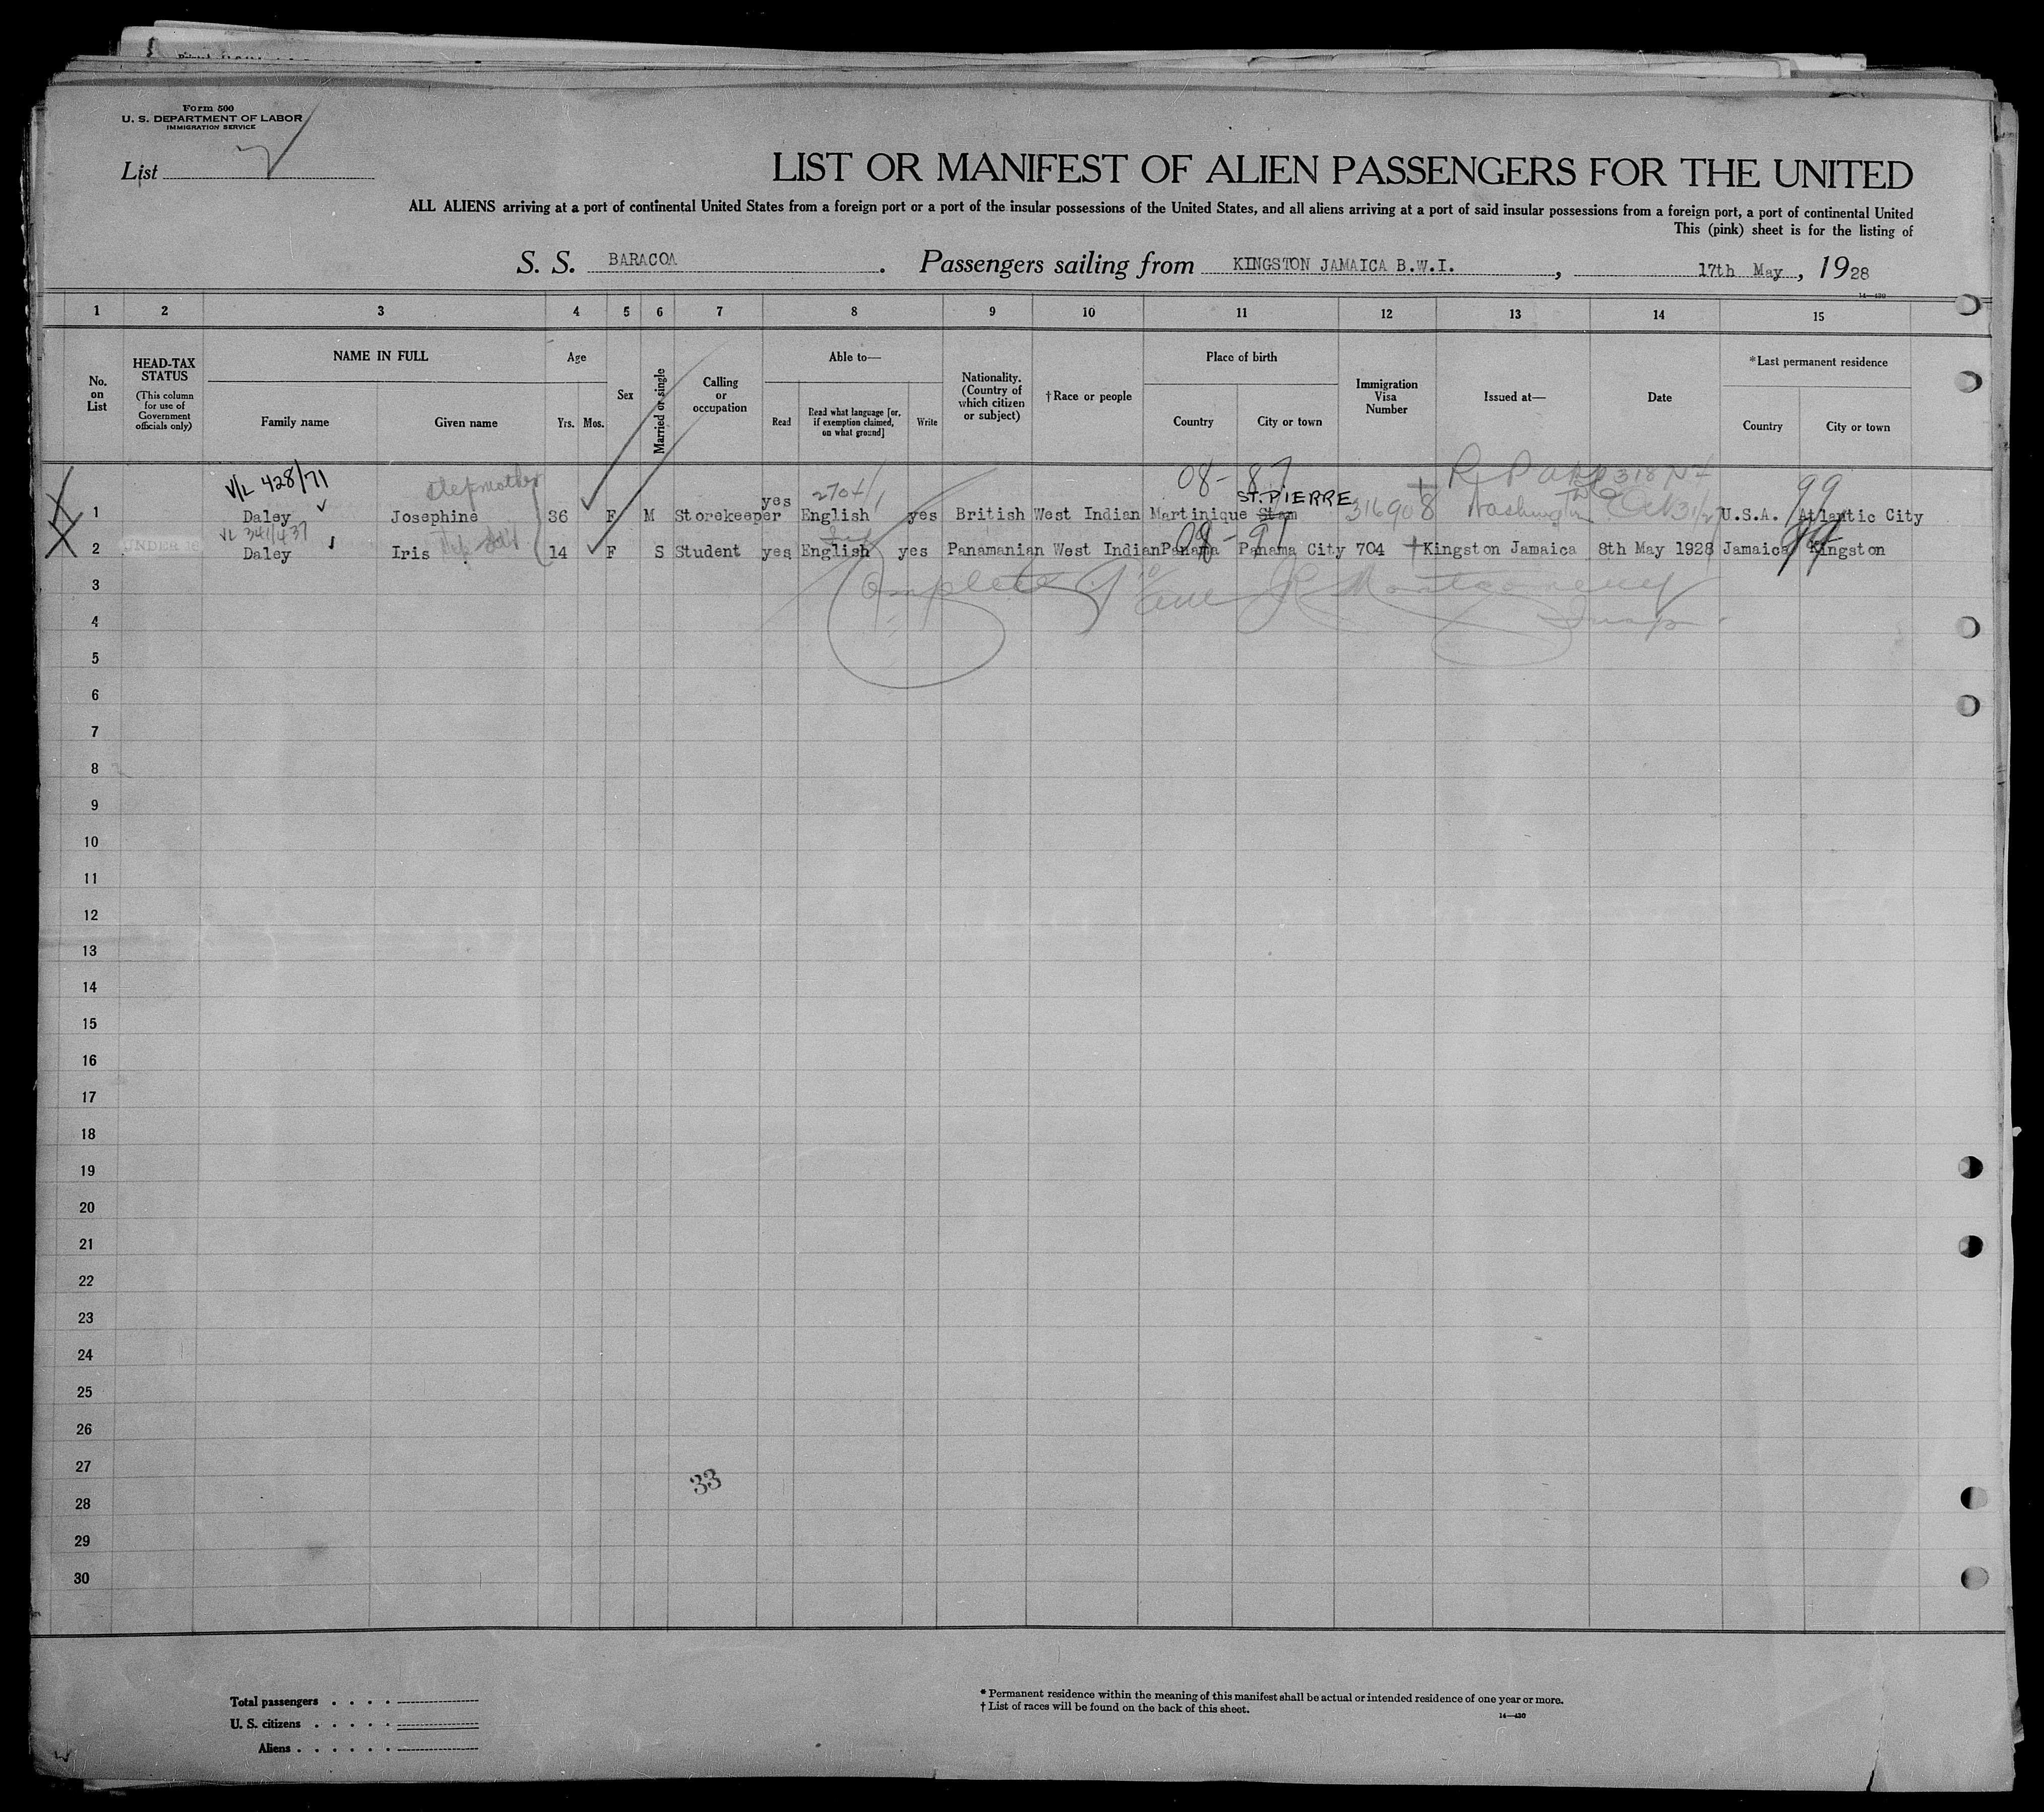 Form 500
U. S. DEPARTMENT OF LABOR
IMMIGRATION SERVICE
List
LIST OR MANIFEST OF ALIEN PASSENGERS FOR THE UNITED
ALL ALIENS arriving at a port of continental United States from a foreign port or a port of the insular possessions of the United States, and all aliens arriving at a port of said insular possessions from a foreign port, a port of continental United
This (pink) sheet is for the listing of
S. S. BARACOA. Passengers sailing from KINGSTON JAMAICA B.W.I., 17th May, 1928
14—430
1 2 3 4 5 6 7 8 9 10 11 12 13 14 15
No. on List
HEAD-TAX STATUS
(This column for use of Government officials only)
NAME IN FULL
Family name Given name
Age
Yrs. Mos.
Sex
Married or single
Calling or occupation
Able to—
Read
Read what language [or, if exemption claimed, on what ground]
Write
Nationality. (Country of which citizen or subject)
†Race or people
Place of birth
Country City or town
Immigration Visa Number
Issued at—
Date
*Last permanent residence
Country City or town
V/L 428/71 stepmother 08-87 99
1 Daley Josephine 36 F M Storekeeper yes English yes British West Indian Martinique ST. PIERRE 316908 Washington Oct 31/27 U.S.A. Atlantic City
VL 341/437
2 UNDER 16 Daley Iris 14 F S Student yes English yes Panamanian West Indian Panama Panama City 704 Kingston Jamaica 8th May 1928 Jamaica Kingston
Complete J. Montgomery
Insp.
3
4
5
6
7
8
9
10
11
12
13
14
15
16
17
18
19
20
21
22
23
24
25
26
27
33
28
29
30
Total passengers . . . .
U. S. citizens . . . . .
Aliens . . . . . .
* Permanent residence within the meaning of this manifest shall be actual or intended residence of one year or more.
† List of races will be found on the back of this sheet.
14—430